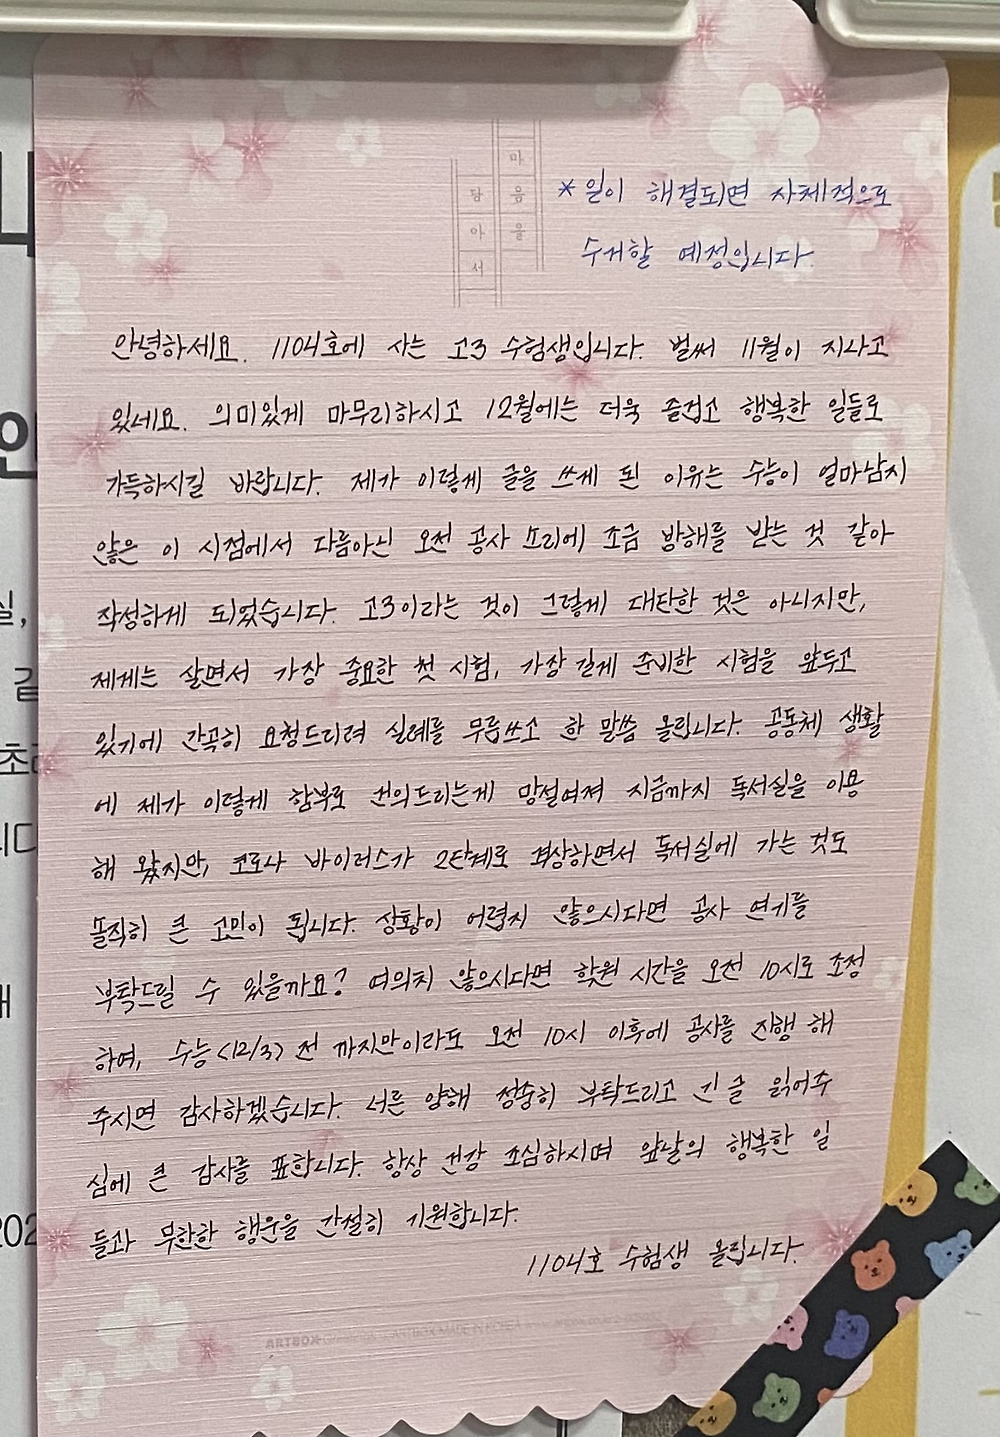 마음을
담아서
*일이 해결되면 자체적으로
수거할 예정입니다.
안녕하세요. 1104호에 사는 고3 수험생입니다. 벌써 11월이 지나고
있네요. 의미있게 마무리하시고 12월에는 더욱 즐겁고 행복한 일들로
가득하시길 바랍니다. 제가 이렇게 글을 쓰게 된 이유는 수능이 얼마남지
않은 이 시점에서 다름아닌 오전 공사 소리에 조금 방해를 받는 것 같아
작성하게 되었습니다. 고3이라는 것이 그렇게 대단한 것은 아니지만,
제게는 살면서 가장 중요한 첫 시험, 가장 길게 준비한 시험을 앞두고
있기에 간곡히 요청드리려 실례를 무릅쓰고 한 말씀 올립니다. 공동체 생활
에 제가 이렇게 함부로 건의드리는게 망설여져 지금까지 독서실을 이용
해 왔지만, 코로나 바이러스가 2단계로 격상하면서 독서실에 가는 것도
솔직히 큰 고민이 됩니다. 상황이 어렵지 않으시다면 공사 연기를
부탁드릴 수 있을까요? 여의치 않으시다면 학원 시간을 오전 10시로 조정
하여, 수능<12/3> 전 까지만이라도 오전 10시 이후에 공사를 진행 해
주시면 감사하겠습니다. 너른 양해 정중히 부탁드리고 긴 글 읽어주
심에 큰 감사를 표합니다. 항상 건강 조심하시며 앞날의 행복한 일
들과 무한한 행운을 간절히 기원합니다.
1104호 수험생 올립니다.